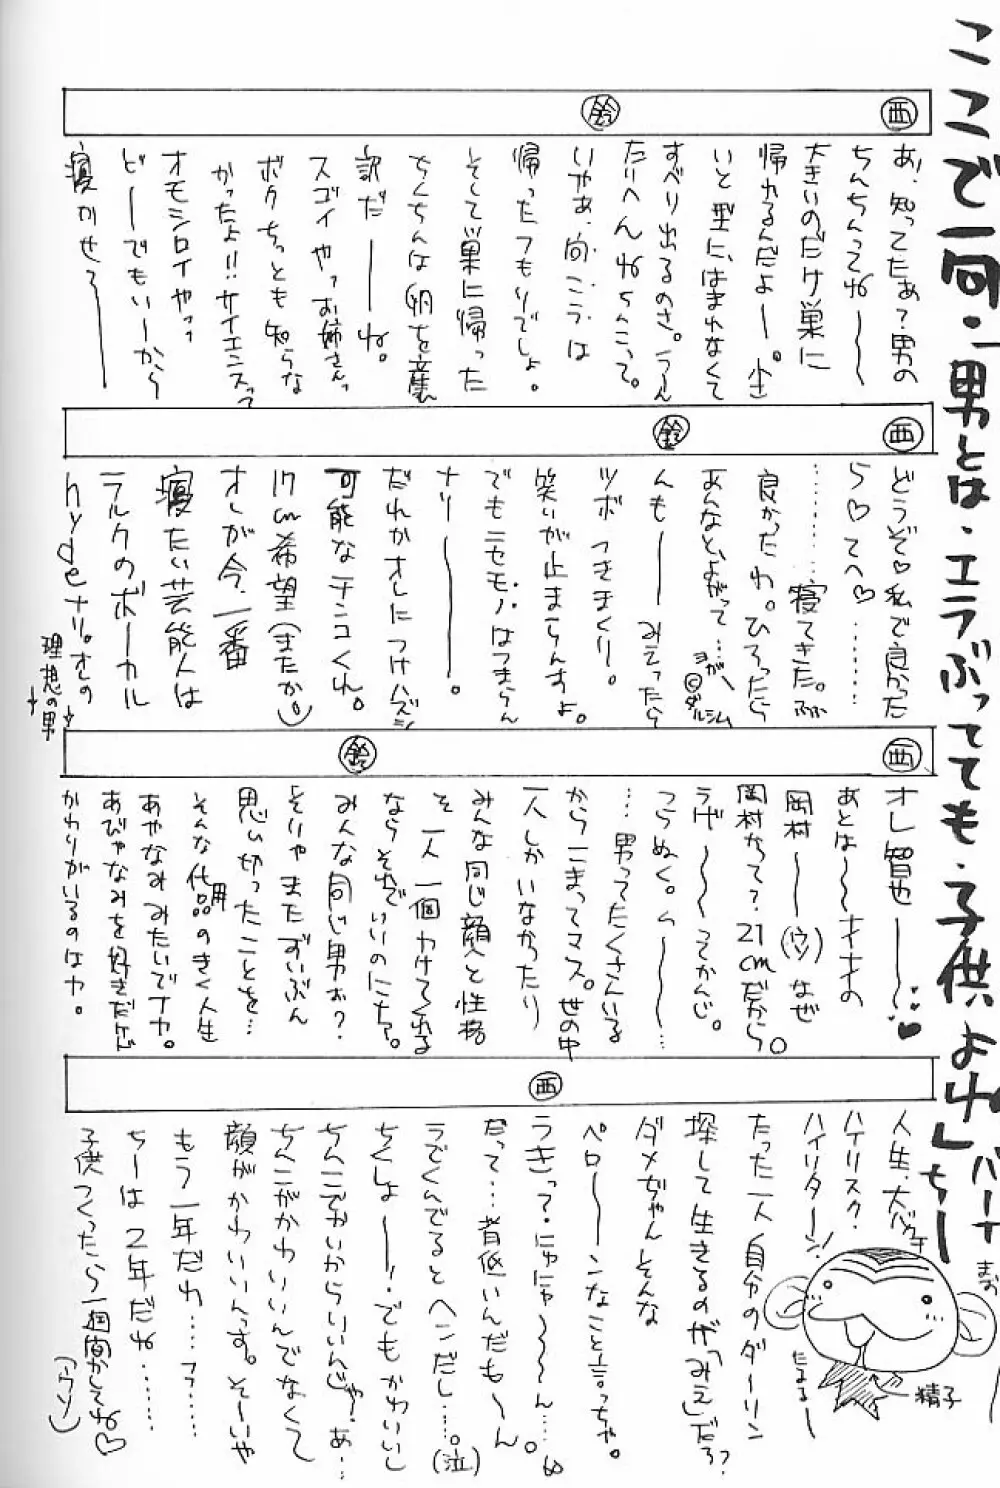 ここで一句・「男とは・エラぶってても・子供よね」ちー
バーナ
西
鈴
あ、知ってたぁ？男の
ちんちんってね〜〜
大きいのだけ巣に
帰れるんだよー。小さ
いと型に、はまれなくて
すべり出るのさ。うーん
たいへんねちんこって。
いやぁ、向こうは
帰ったつもりでしょ。
そして巣に帰った
ちんちんは卵を産む
訳だーーね。
スゴイやっお姉さんっ
ボクちっとも知らな
かったよ!!サイエンスっ
オモシロイやっっ
どーーでもいーから
寝かせろーーー
西
鈴
どうぞ♡私で良かった
ら♡てへ♡…………
………寝てきた。ふふ
良かったわ。ひろったら
あんなと、よがって…ヨガー
©ダルシム
んもーー みえったら
ツボつきまくりー。
笑いが止まらんすよ。
でもニセモノはつまらん
ナリーーー。
だれかオレにつけハズシ
可能なチンコくれ。
17cm希望(またか。)
オレが今、一番
寝たい芸能人は
ラルクのボーカル
hydeナリ。オレの
理想の男
西
鈴
オレ智也ーーー♥
あとは〜〜オオオの
岡村ーー(ウソ)なぜ
岡村かって？21cmだから。
うげ〜〜ってかんじ。
つらぬく。ム〜〜〜
…男ってたくさんいる
からこまってマス。世の中
一人しかいなかったり
みんな同じ顔と性格
で一人一個わけてくれる
ならそれでいいのにナァ。
みんな同じ男ぉ？
そりゃまたずいぶん
思い切ったことを…
そんな代用品のきく人生
あやなみみたいでナァ。
あびゃなみを好きだケド
かわりがいるのはヤ。
西
人生、大バクチ
ハイリスク・
ハイリターン！
たった一人自分のダーリン
探して生きるのが「みえ」だろ？
ダメぢゃんそんな
ペローーンなこと言っちゃ。
うきって・にゅにゃ〜〜〜ん……。
だって…背低いんだも〜ん
ラでくんでるとヘンだし…。(泣)
ちくしょーー！でもかわいいし
ちんこでかいからいいんじゃ？あ…
ちんこがかわいいんでなくて
顔がかわいいんっす。そーいや
もう一年だわ……フフ……
ちーは2年だね………
子供つくったら一個間かしてね♡
(ウソ)
まお
たまるー
精子